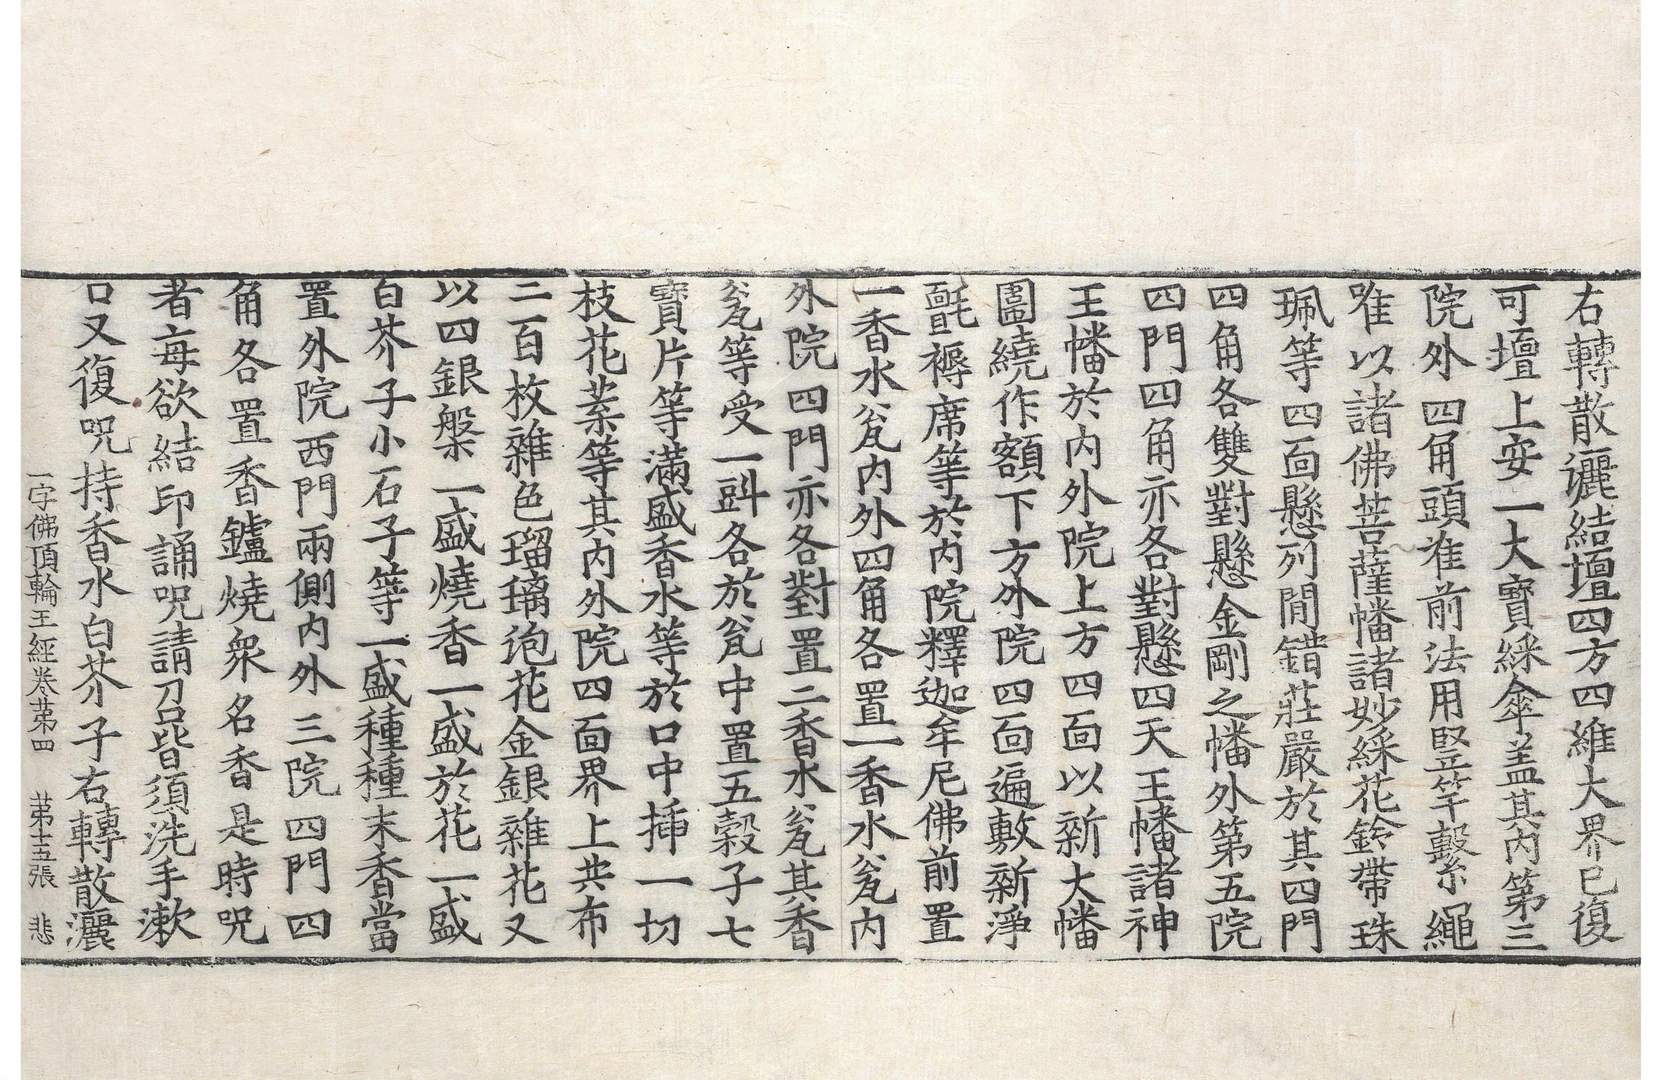 右轉散灑結壇四方四維大界已復
可壇上安一大寶綵傘蓋其內第三
院外四角頭准前法用竪竿繫繩
唯以諸佛菩薩幡諸妙綵花鈴帶珠
珮等四面懸列閒錯莊嚴於其四門
四角各雙對懸金剛之幡外第五院
四門四角亦各對懸四天王幡諸神
王幡於內外院上方四面以新大幡
圍繞作額下方外院四面遍敷新淨
氎褥席等於內院釋迦牟尼佛前置
一香水瓮內外四角各置一香水瓮內
外院四門亦各對置二香水瓮其香
瓮等受一㪷各於瓮中置五穀子七
寶片等滿盛香水等於口中揷一切
枝花葉等其內外院四面界上共布
二百枚雜色瑠璃皰花金銀雜花又
以四銀槃一盛燒香一盛於花一盛
白芥子小石子等一盛種種末香當
置外院西門兩側內外三院四門四
角各置香鑪燒衆名香是時呪
者每欲結印誦呪請召皆須洗手漱
口又復呪持香水白芥子右轉散灑
一字佛頂輪王經卷第四　第十五張　悲